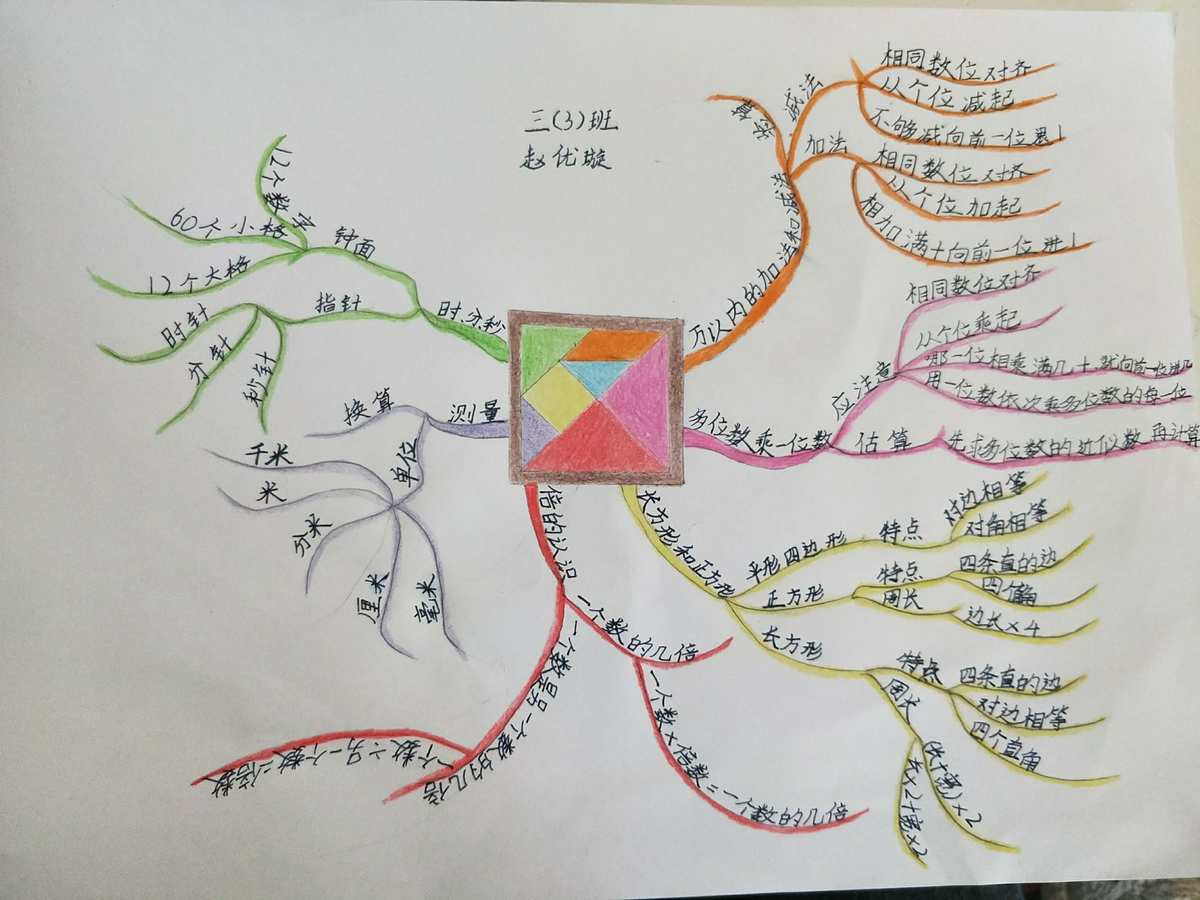 三(3)班
赵优璇
万以内的加法和减法
验算
减法
相同数位对齐
从个位减起
不够减向前一位退1
加法
相同数位对齐
从个位加起
相加满十向前一位进1
多位数乘一位数
应注意
相同数位对齐
从个位乘起
哪一位相乘满几十就向前一位进几
用一位数依次乘多位数的每一位
估算
先求多位数的近似数再计算
长方形和正方形
平形四边形
特点
对边相等
对角相等
正方形
特点
四条直的边
周长
边长×4
长方形
特点
四条直的边
对边相等
四个直角
周长
(长+宽)×2
长×2+宽×2
倍的认识
一个数的几倍
一个数×倍数=一个数的几倍
一个数是另一个数的几倍
一个数÷另一个数=倍数
测量
换算
单位
千米
米
分米
厘米
毫米
时分秒
钟面
12个数字
60个小格
12个大格
指针
时针
分针
秒针